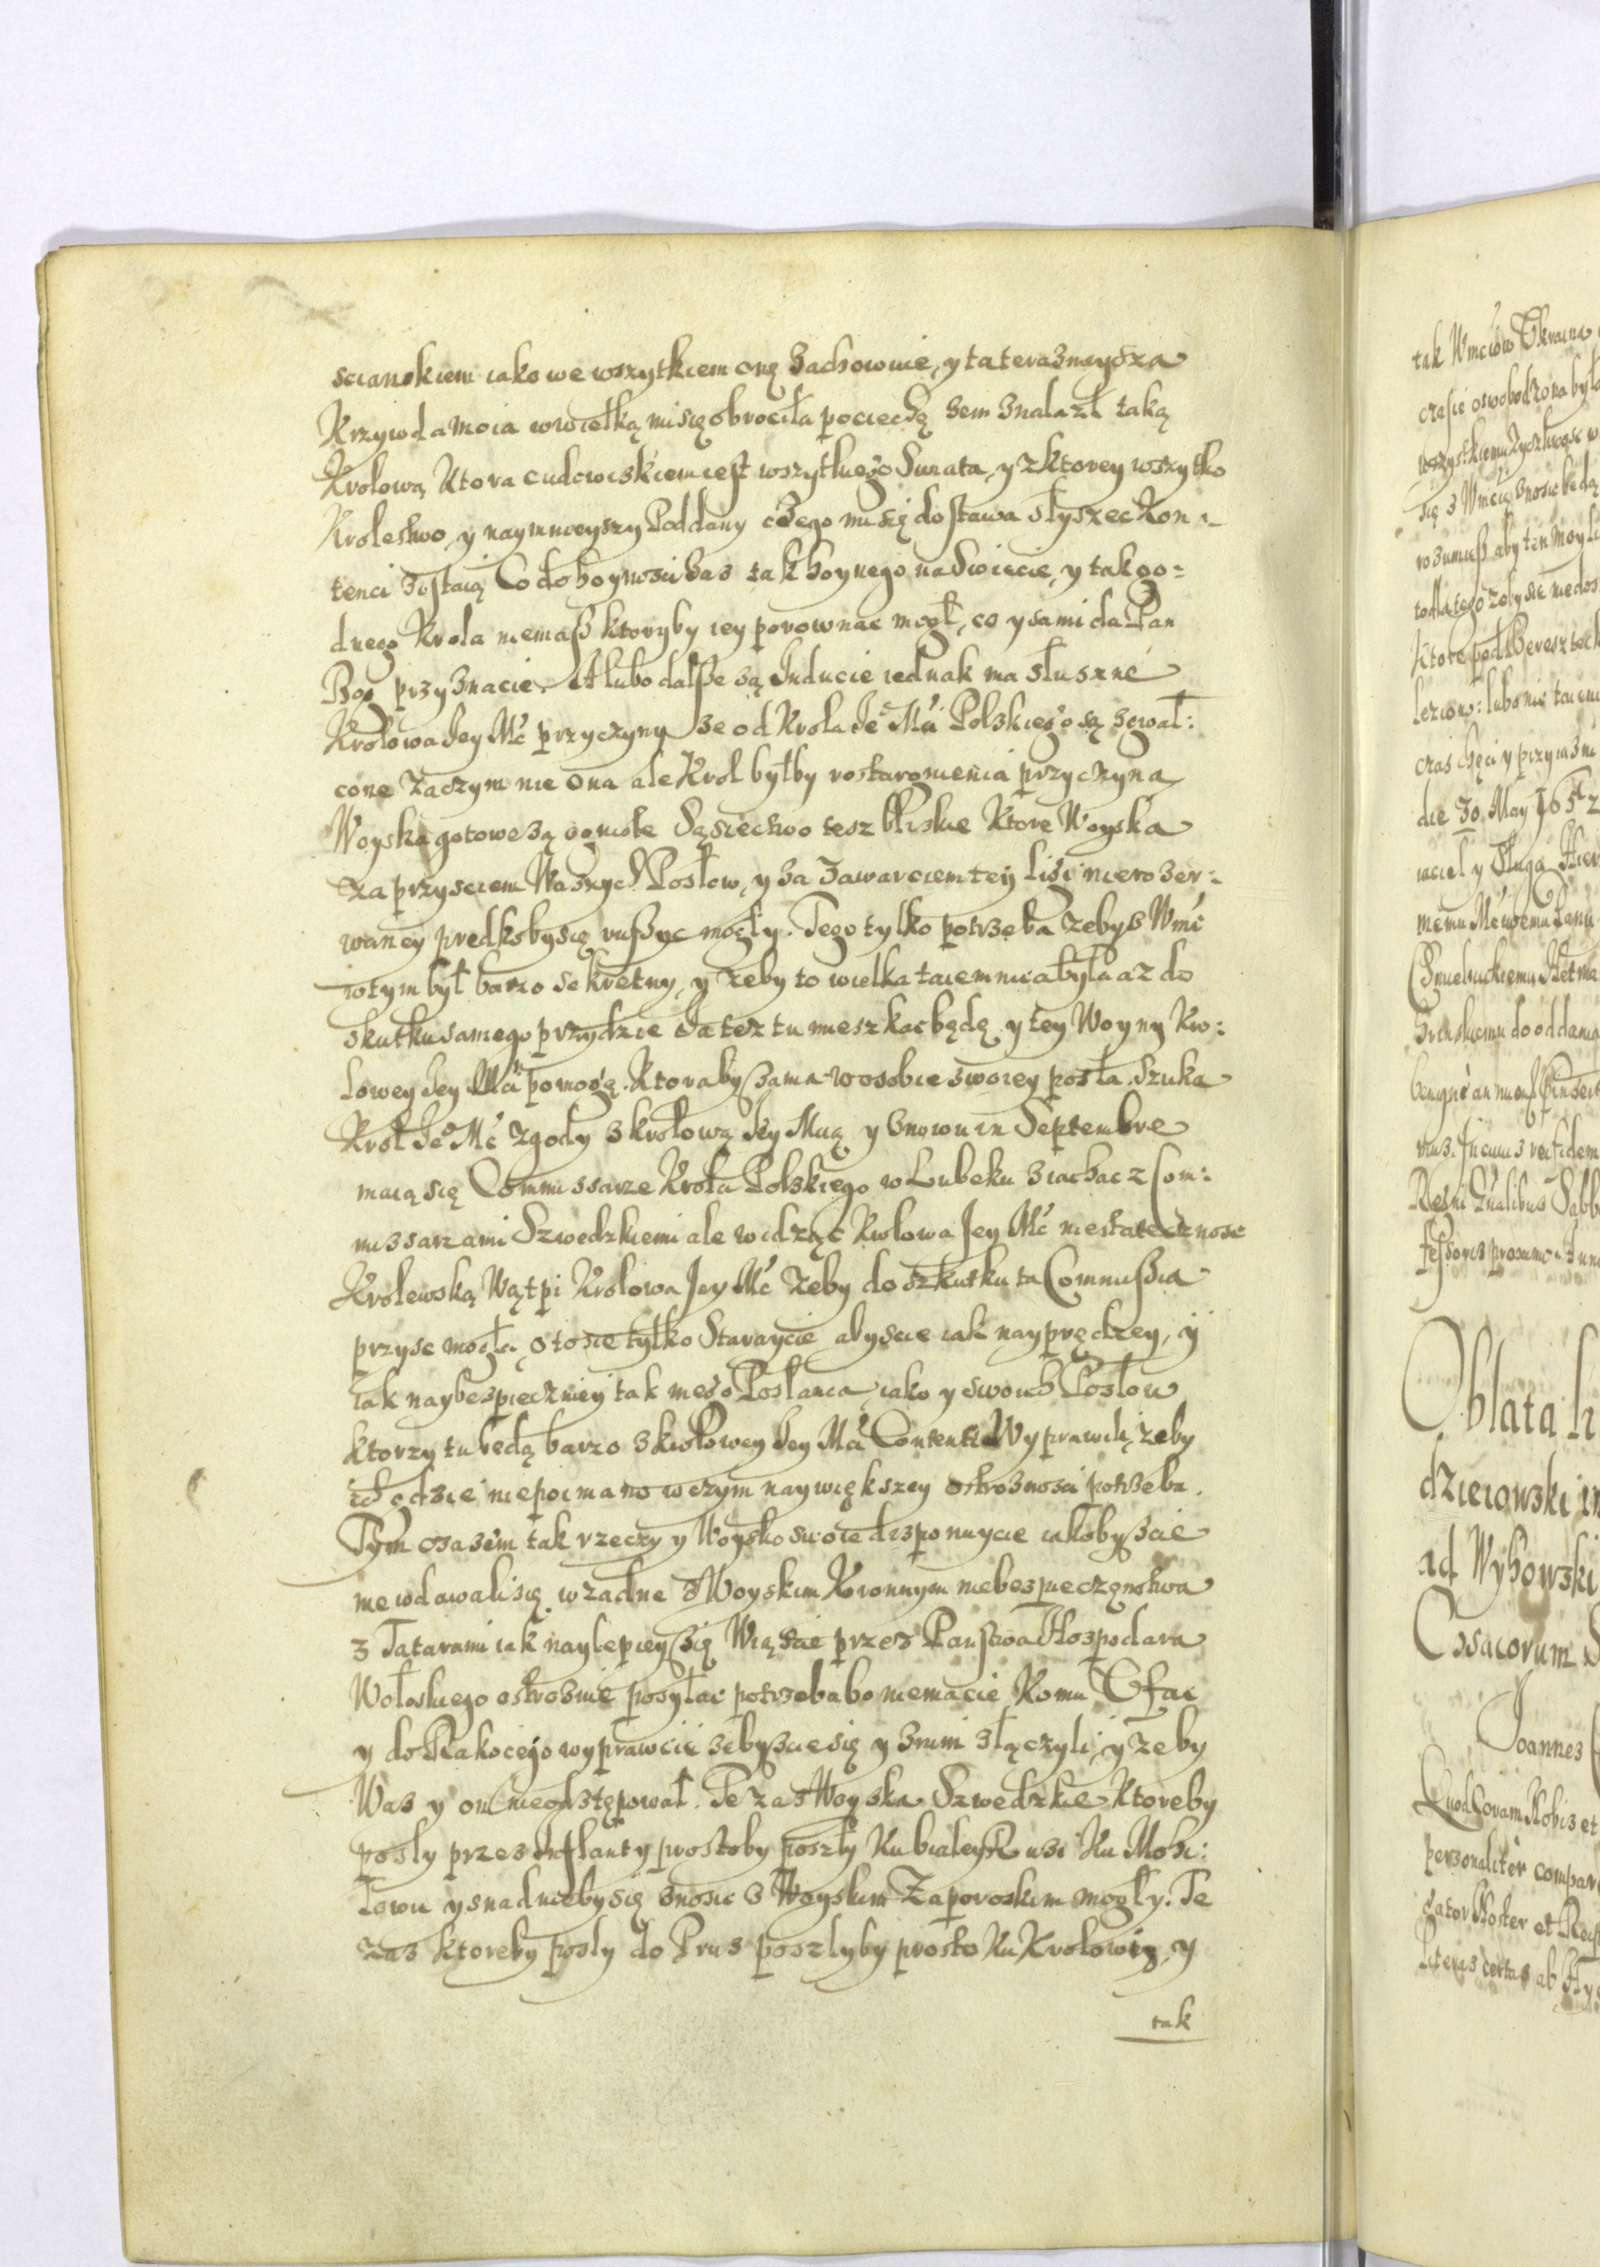 scianskiem iako we wszytkiem onę zachowuie, y ta teraznieysza
Krzywda moia w wielką mi się obrociła pociechę zem znalazł taką
Krolową Ktora cudowiskiem iest wszytkiego Swiata, y z ktorey wszytko
Krolestwo, y naymnieyszy Poddany czego mi się dostawa słyszec kon-
tenci zostaią Co do hoynosci zas tak hoynego na Swiecie, y tak go=
dnego Krola niemasz ktoryby iey porownac mogł, co y sami da Pan
Bog przyznacie. A lubo dalsze są Inducie iednak ma słuszne
Krolowa Jey Mć przyczyny ze od Krola Je° Mći Polskiego są zgwał:
cone Zaczym nie ona ale Krol byłby roztargnienia przyczyna
Woyska gotowe są ogniste Sąsiectwo tesz bliskie Ktore Woyska
za przysciem Waszych Posłow, y za zawarciem tey Ligi nierozer:
waney prędkoby się ruszyc mogły. Tego tylko potrzeba zebys Wmć
w tym był barzo sekretny, y zeby to wielka taiemnica była az do
skutku samego przydzie Ja tez tu mieszkac będę y tey Woyny Kro:
lowey Jey Mći pomogę. Ktoraby sama w osobie swoiey posła. Szuka
Krol Je° Mć zgody z krolową Jey Mcią y znowu in Septembre
maią się Commissarze Krola Polskiego w Lubeku ziachac z Com:
missarzami Szwedzkiemi ale widząc Krolowa Jey Mć niestatecznosc
Krolewską Wątpi Krolowa Jey Mć Zeby do szkutku ta Commissia
przysc mogła, o to sie tylko Staraycie abyscie iak nayprędzey, y
iak naybespieczniey tak mego Posłanca, iako y swoich Posłow
ktorzy tu będą barzo z krolowey Jey Mći Contenti Wyprawili, zeby
ich gdzie niepoimano w czym naywiększey ostroznosci potrzeba.
Tym czasem tak rzeczy y Woysko swoie disponuycie iakobyscie
nie wdawali się w zadne z Woyskim Koronnym niebespieczęnstwa
z Tatarami iak naylepiey się Wiązcie przez Panstwa Hospodara
Wołoskiego ostroznie posyłac potrzeba bo niemacie Komu Ufac
y do Rakocego wyprawcie zebyscie się y z nim złączyli, y zeby
Was y on nieodstępował. Te zas Woyska Szwedzkie Ktoreby
posły przez Inflanty prostoby poszły Ku białey Rusi Ku Mohi:
lowu y snadnieby się znosic z Woyskim Zaporoskim mogły. Te
zas ktoreby posły do Prus poszłyby prosto Ku Krolowig, y
tak
tak Wmciow Ukraina
czasie oswobodzona była
wszystkiemu Zyczliwosc w
się z Wmcią znosic będą
rozumiesz aby ten moy li
todla tego zeby sie niedos
Ktore pod Beresztecz
leziono: lubo nic taiem
czas chęci y przyiazni
die 30 May 1652
iaciel y Sługa Hier
memu Mćwemu Panu
Chmielnickiemu Hetma
do oddania
Oblata li
dzieiowski in
ad Wyhowski
Cosacorum S
Joannes
Quod Coram Nobis et
personaliter compar
gator Noster et Reip
Literas certas ab